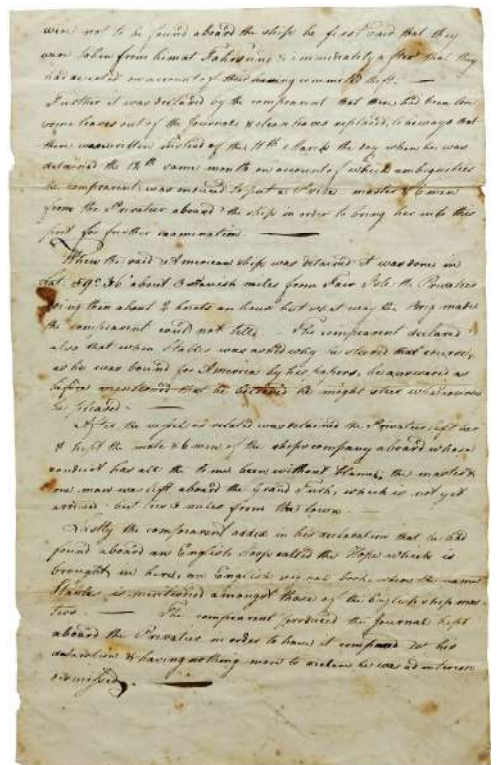 were not to be found aboard the ship he first said that they
were taken from him at Fahrsund & immediately after that they
had deserted on account of their having committed theft. —
Further it was declared by the comparant that there had been torn
some leaves out of the Journals & clean leaves replaced, & always that
there was written instead of the 11th March the day when he was
detained the 12th same month on account of which ambiguities
the comparant was induced to put a Prize master & 6 men
from the Privatier aboard the ship in order to bring her into this
port for further examination —
When the said American ship was detained it was done in
Lat. 59° 36' about 3 Danish miles from Fair Isle, the Privatier
going then about 2 knots an hour but what way the Brig made
the comparant could not tell. The comparant declared
also that when Stables was asked why he steered that course,
as he was bound for America by his papers, he answered as
before mentioned that he believed he might steer what course
he pleased. —
After the vessel as related was detained the Privatier left her
& kept the mate & 6 men of the ships company aboard whose
conduct has all the time been without blame; the master &
one man was left aboard the Grand Turk, which is not yet
arrived but lies 3 miles from the town —
Lastly the comparant added in his declaration that he had
found aboard an English sloop called the Hope which is
brought in here, an English signal book, where the name
Stables is mentioned amongst those of the English ship mas-
ters. — The comparant produced the Journal kept
aboard the Privatier in order to have it compared to his
declaration & having nothing more to declare he was ad interim
dismissed. —